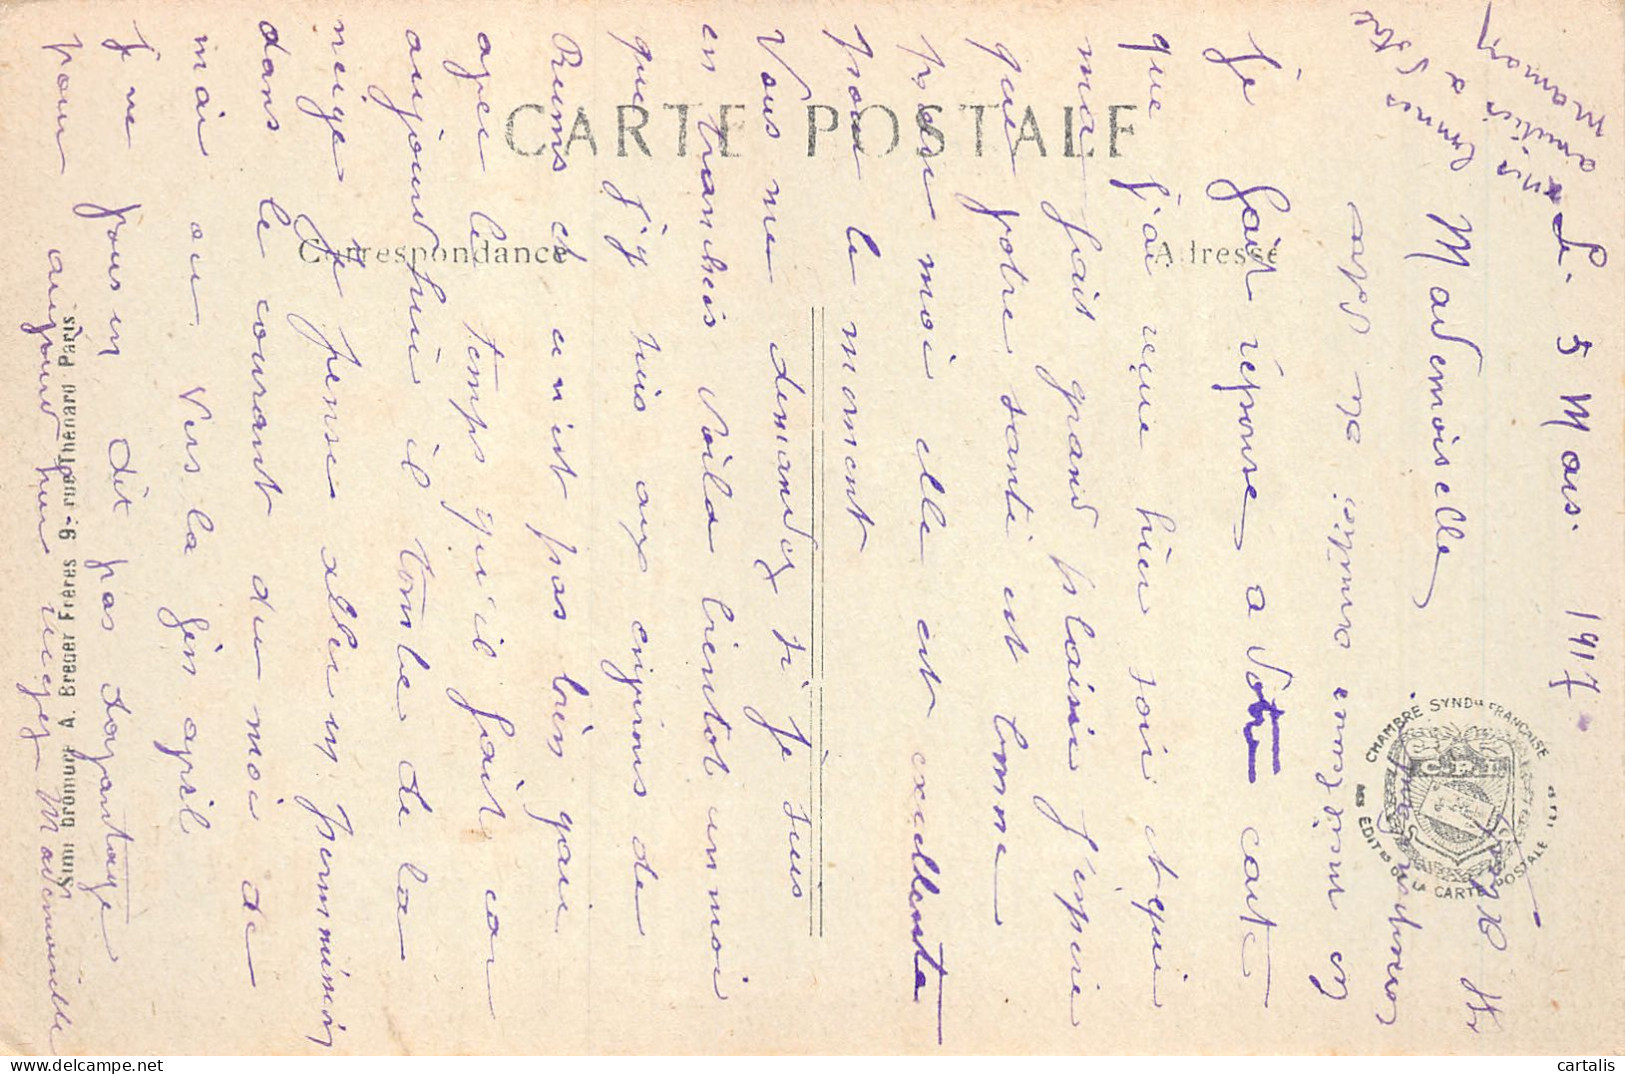 Le 5 Mars. 1917
Mademoiselle
Je fait réponse a Votre carte
que j'ai reçue hier soir et qui
ma fait grand plaisir j'espère
que votre santé est bonne
pour moi elle est excellente
pour le moment
Vous me demandez si je suis
en tranchées voila bientot un moi
que j'y suis aux environs de
Reims et ce n'est pas bien gaie
avec le temps qu'il fait car
aujourd'hui il tombe de la
neige Je pense aller en permission
dans le courant du moi de
mai ou vers la fin avril
Je ne vous en dit pas davantage
pour aujourd'hui recevez Mademoiselle
mes
bonnes
amitiés a
Maman
CARTE POSTALE
Correspondance
Adresse
CHAMBRE SYNDle FRANÇAISE
DES EDITrs DE LA CARTE POSTALE
C.P.I.
A. Breger Frères 9, rue Thénard Paris
cartalis.com